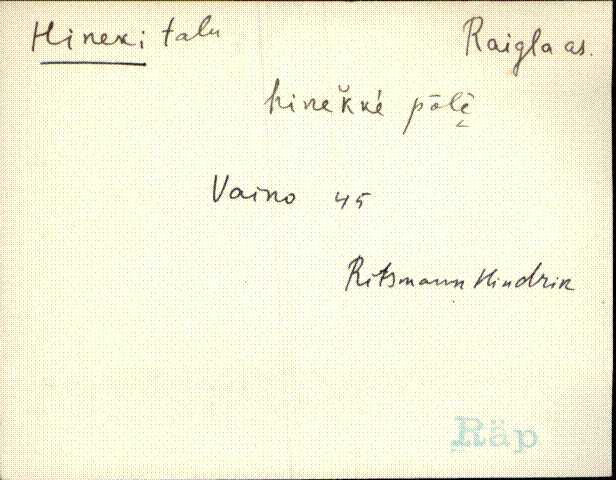 Hineki talu Raigla as.
hinek̆ké pōlè̬
Vaino 45
Ritsmann Hindrik
Räp